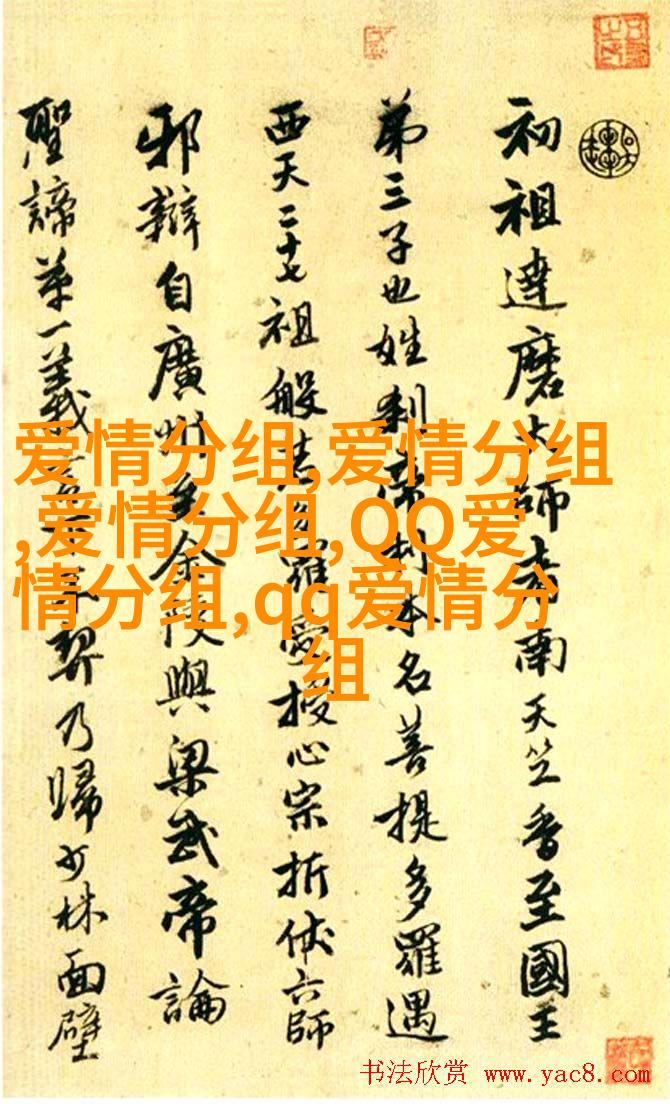 初祖達磨大師者南天竺香至國王
第三子也姓刹帝利本名菩提多羅遇
西天二十七祖般若多羅授心宗折伏六師
邪辯自廣州至金陵與梁武帝論
聖諦第一義契乃歸少林面壁
爱情分组,爱情分组
,爱情分组,QQ爱
情分组,qq爱情分
组
书法欣赏 www.yac8.com